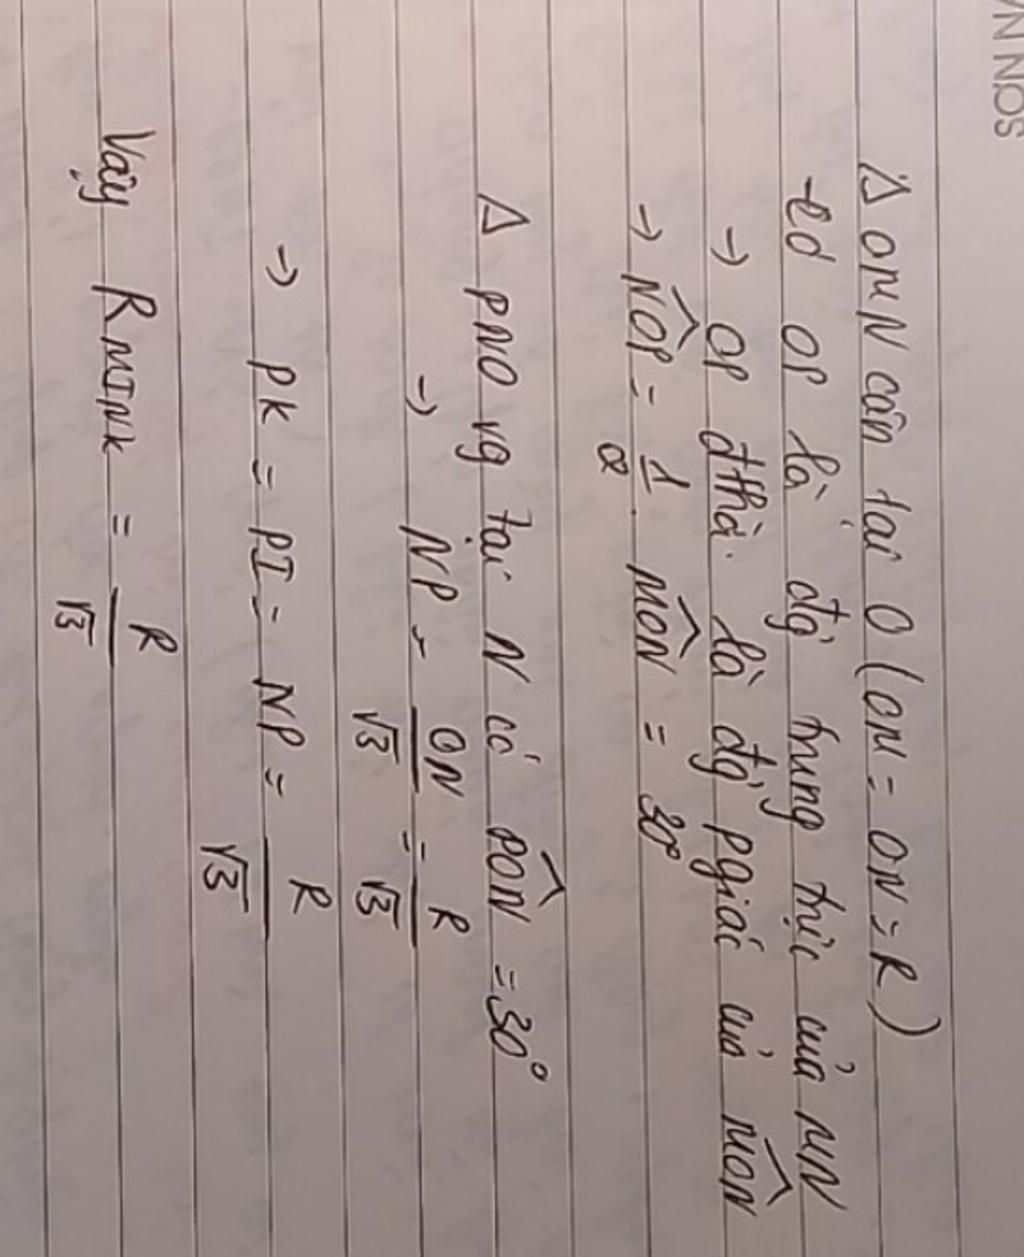 SƠN NỌC
Δ OMN cân tại O (OM = ON = R)
có OP là đg trung trực của MN
→ OP đthời là đg pgiác của MÔN
→ NÔP = 1/2 . MÔN = 30°
Δ PNO vg tại N có PÔN = 30°
→ NP = ON/√3 = R/√3
→ PK = PI = NP = R/√3
Vậy R MINK = R/√3